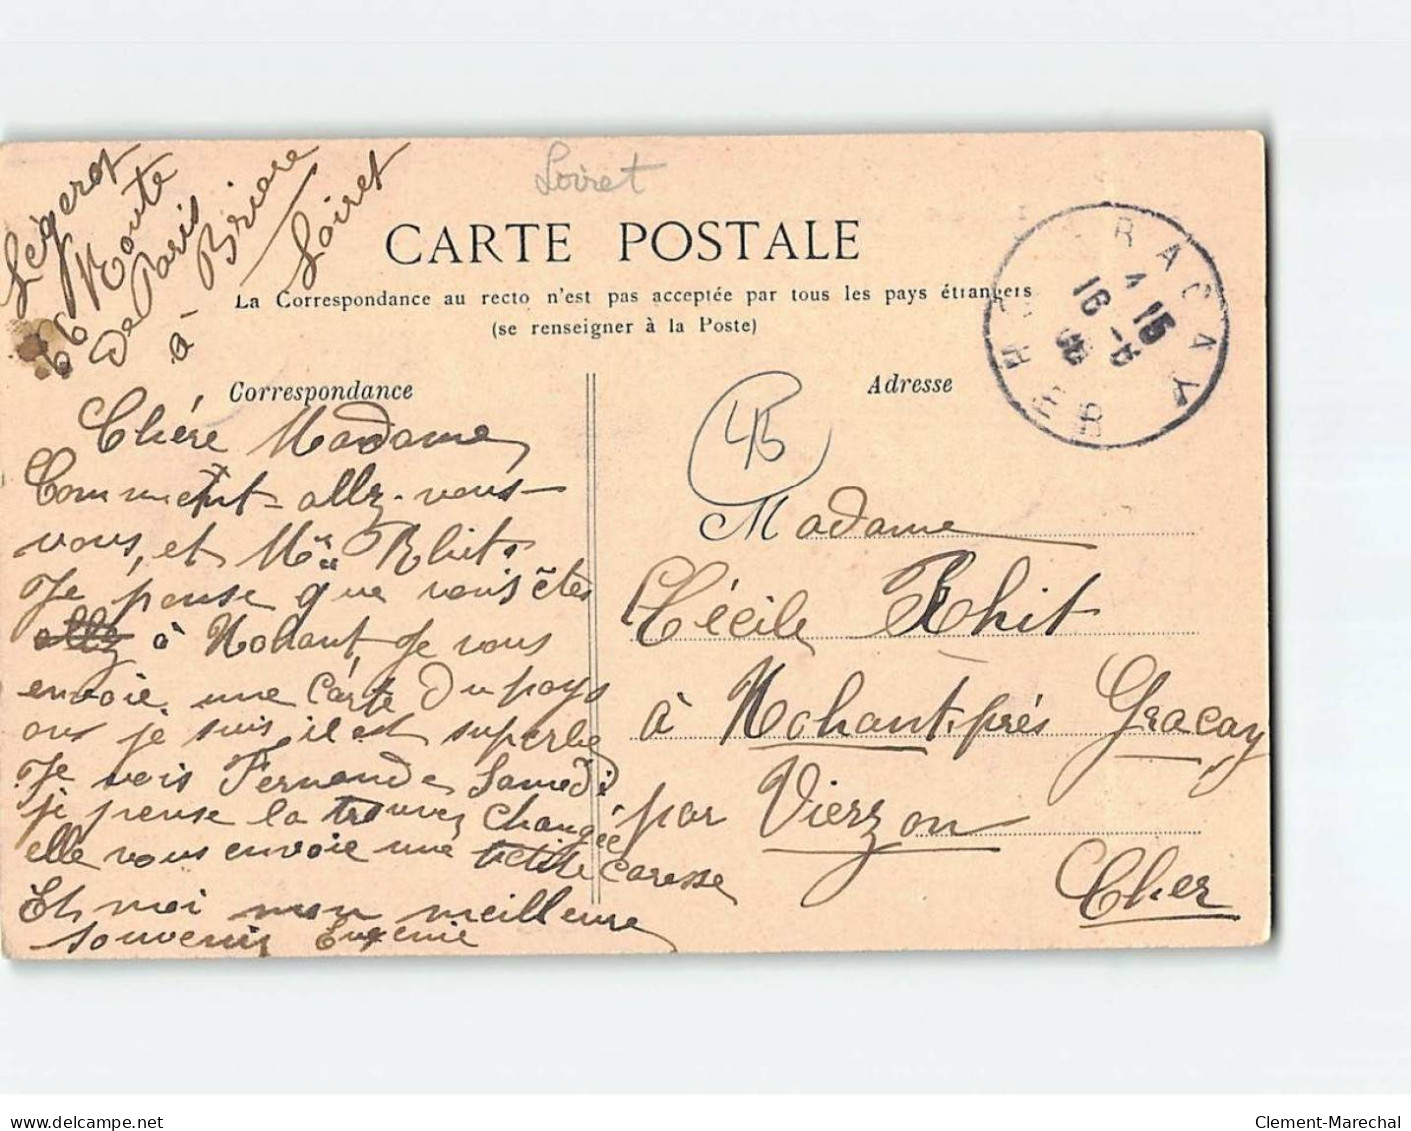 Légerot
66 Route
De Paris
à Briare
Loiret
Loiret
CARTE POSTALE
La Correspondance au recto n'est pas acceptée par tous les pays étrangers
(se renseigner à la Poste)
GRACAY
CHER
15
16 -8
Correspondance
Adresse
45
Chére Madame
Comment-allz-vous-
vous, et Mr Rhit.
Je pense que vous êtes
allz à Nohant, Je vous
envoie une Carte Du pays
ous je suis il est superbe
Je vois Fernande Samedi
je pense la trouvez changée
elle vous envoie une petite Caresse
Et moi mon meilleure
souvenir Eugenie
Madame
Cécile Rhit
à Nohant-prés Gracay
par Vierzon
Cher
delcampe.net
Clement-Marechal